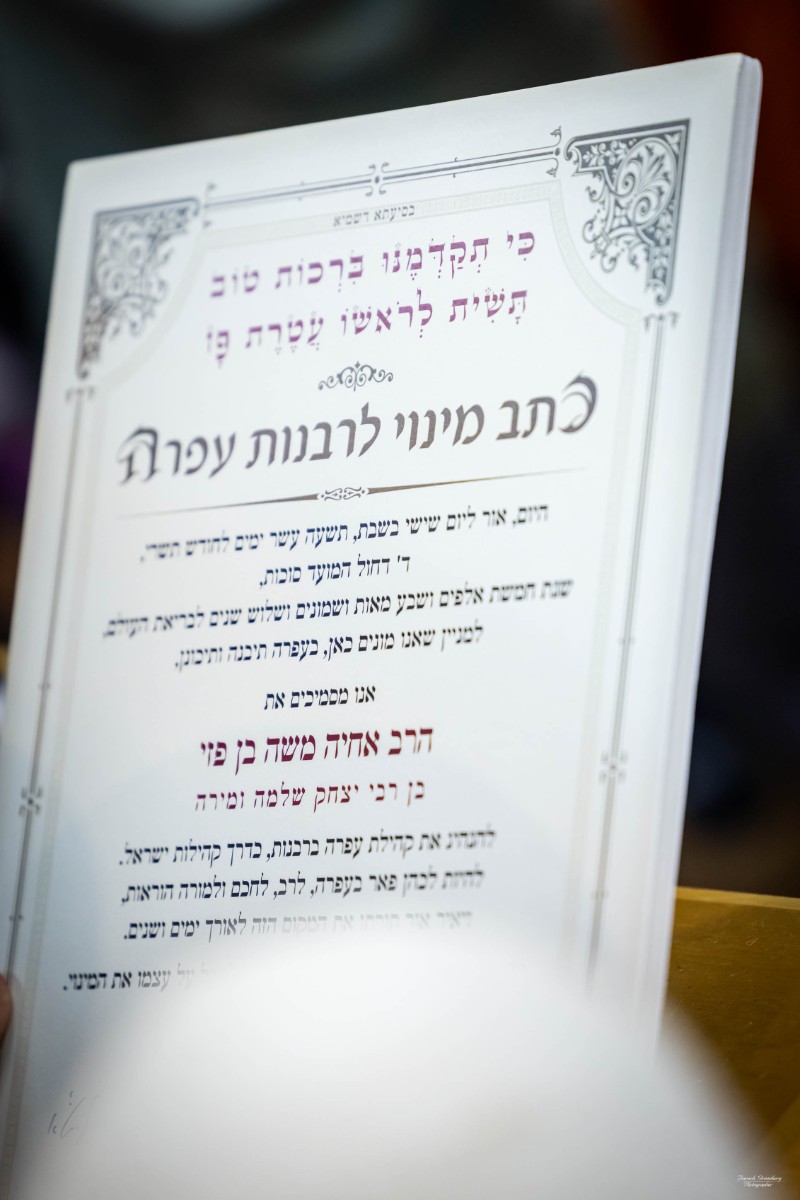 בסיעתא דשמיא
כִּי תְקַדְּמֶנּוּ בִּרְכוֹת טוֹב
תָּשִׁית לְרֹאשׁוֹ עֲטֶרֶת פָּז
כתב מינוי לרבנות עפרה
היום, אור ליום שישי בשבת, תשעה עשר ימים לחודש תשרי,
ד' דחול המועד סוכות,
שנת חמשת אלפים ושבע מאות ושמונים ושלוש שנים לבריאת העולם,
למניין שאנו מונים כאן, בעפרה תיבנה ותיכונן,
אנו מסמיכים את
הרב אחיה משה בן פזי
בן רבי יצחק שלמה ומירה
להנהיג את קהילת עפרה ברבנות, כדרך קהילות ישראל.
להיות לכהן פאר בעפרה, לרב, לחכם ולמורה הוראות,
ויאיר אור תורתו את המקום הזה לאורך ימים ושנים.
על עצמו את המינוי.
Photographer